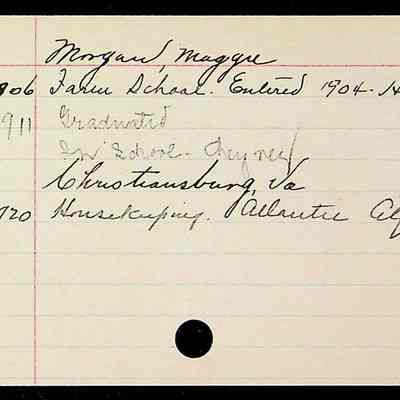 Morgan, Maggie
906 Farm School. Entered 1904-14
911 Graduated
In School - Cheyney
Christiansburg, Va
920 Housekeeping. Atlantic City